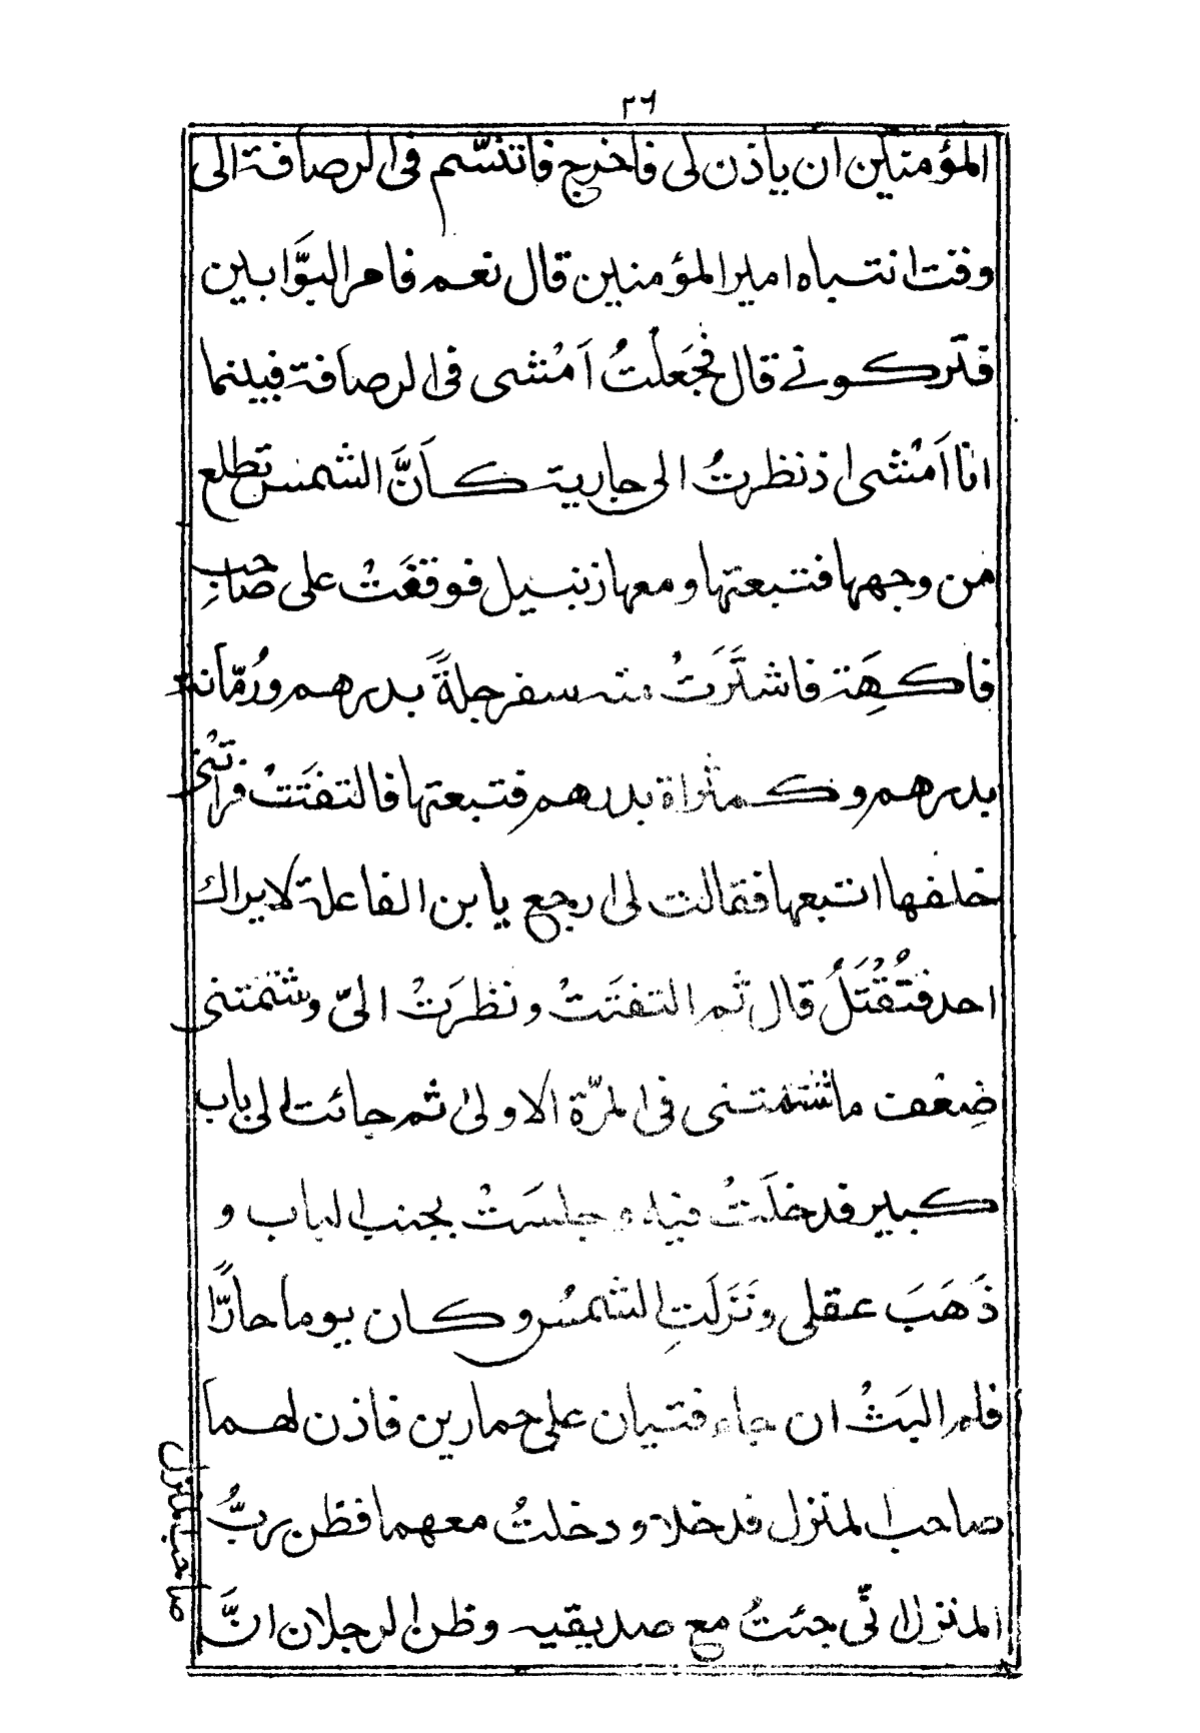 ٢٦
المؤمنين ان ياذن لى فاخرج فاتنسّم فى الرصافة الى
وقت انتباه امير المؤمنين قال نعم فامر البوَّابين
فتركونے قال فجَعَلْتُ اَمْشى فى الرصَافة فبينما
انا اَمْشى اذ نظرتُ الى جارية كَاَنَّ الشمس تطلع
من وجهها فتبعتها ومعها زنبيل فوقفَتْ على صَاحبِ
فاكهَِة فاشتَرَتْ منه سفرجلةً بدرهم ورُمّانة
بدرهم وكمثراة بدرهم فتبعتها فالتفتَتْ فراتْنى
خلفها اتبعها فقالت لى ارجع يا بن الفاعلة لا يراك
احد فتُقْتَلُ قال ثم التفتَتْ ونظَرَتْ الىّ وشتمتنى
ضِعْف ما شتمتنى فى المرّة الاولىٰ ثم جائت الى باب
كبير فدخلَتْ فيه وجلسَتْ بجنب الباب و
ذَهَبَ عقلى ونَزَلَتِ الشمسُ وكان يوما حارًّا
فلم البَثْ ان جاء فتيان على حمارين فاذن لهما
صاحب المنزل فدخلا ودخلتُ معهما فظن ربُّ
المنزل انّى جئتُ مع صديقيه وظن الرجلان انَّ
صاحب المنزل